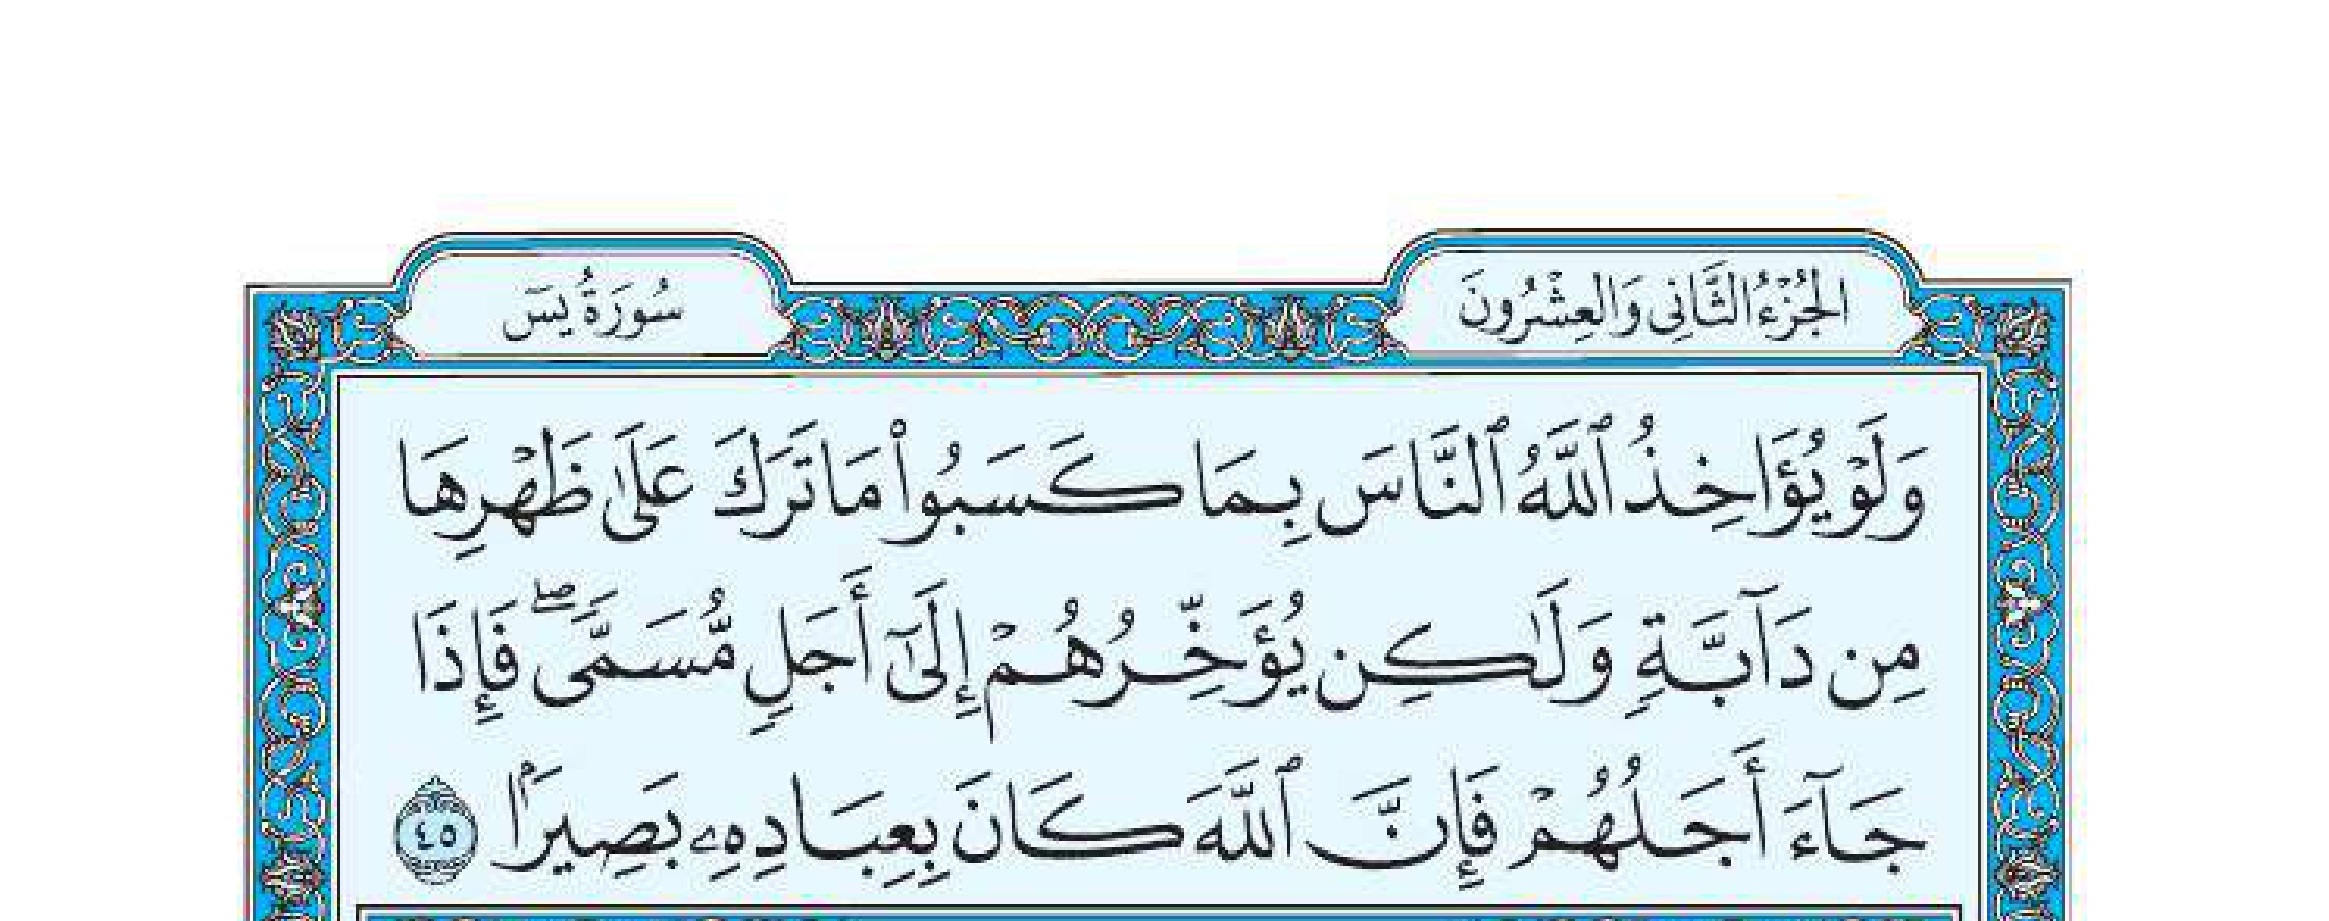 الجُزْءُ الثَّانِي وَالعِشْرُونَ
سُورَةُ يسَ
وَلَوْ يُؤَاخِذُ ٱللَّهُ ٱلنَّاسَ بِمَا كَسَبُوا۟ مَا تَرَكَ عَلَىٰ ظَهْرِهَا
مِن دَآبَّةٍ وَلَٰكِن يُؤَخِّرُهُمْ إِلَىٰٓ أَجَلٍ مُّسَمًّى ۖ فَإِذَا
جَآءَ أَجَلُهُمْ فَإِنَّ ٱللَّهَ كَانَ بِعِبَادِهِۦ بَصِيرًۢا ٤٥